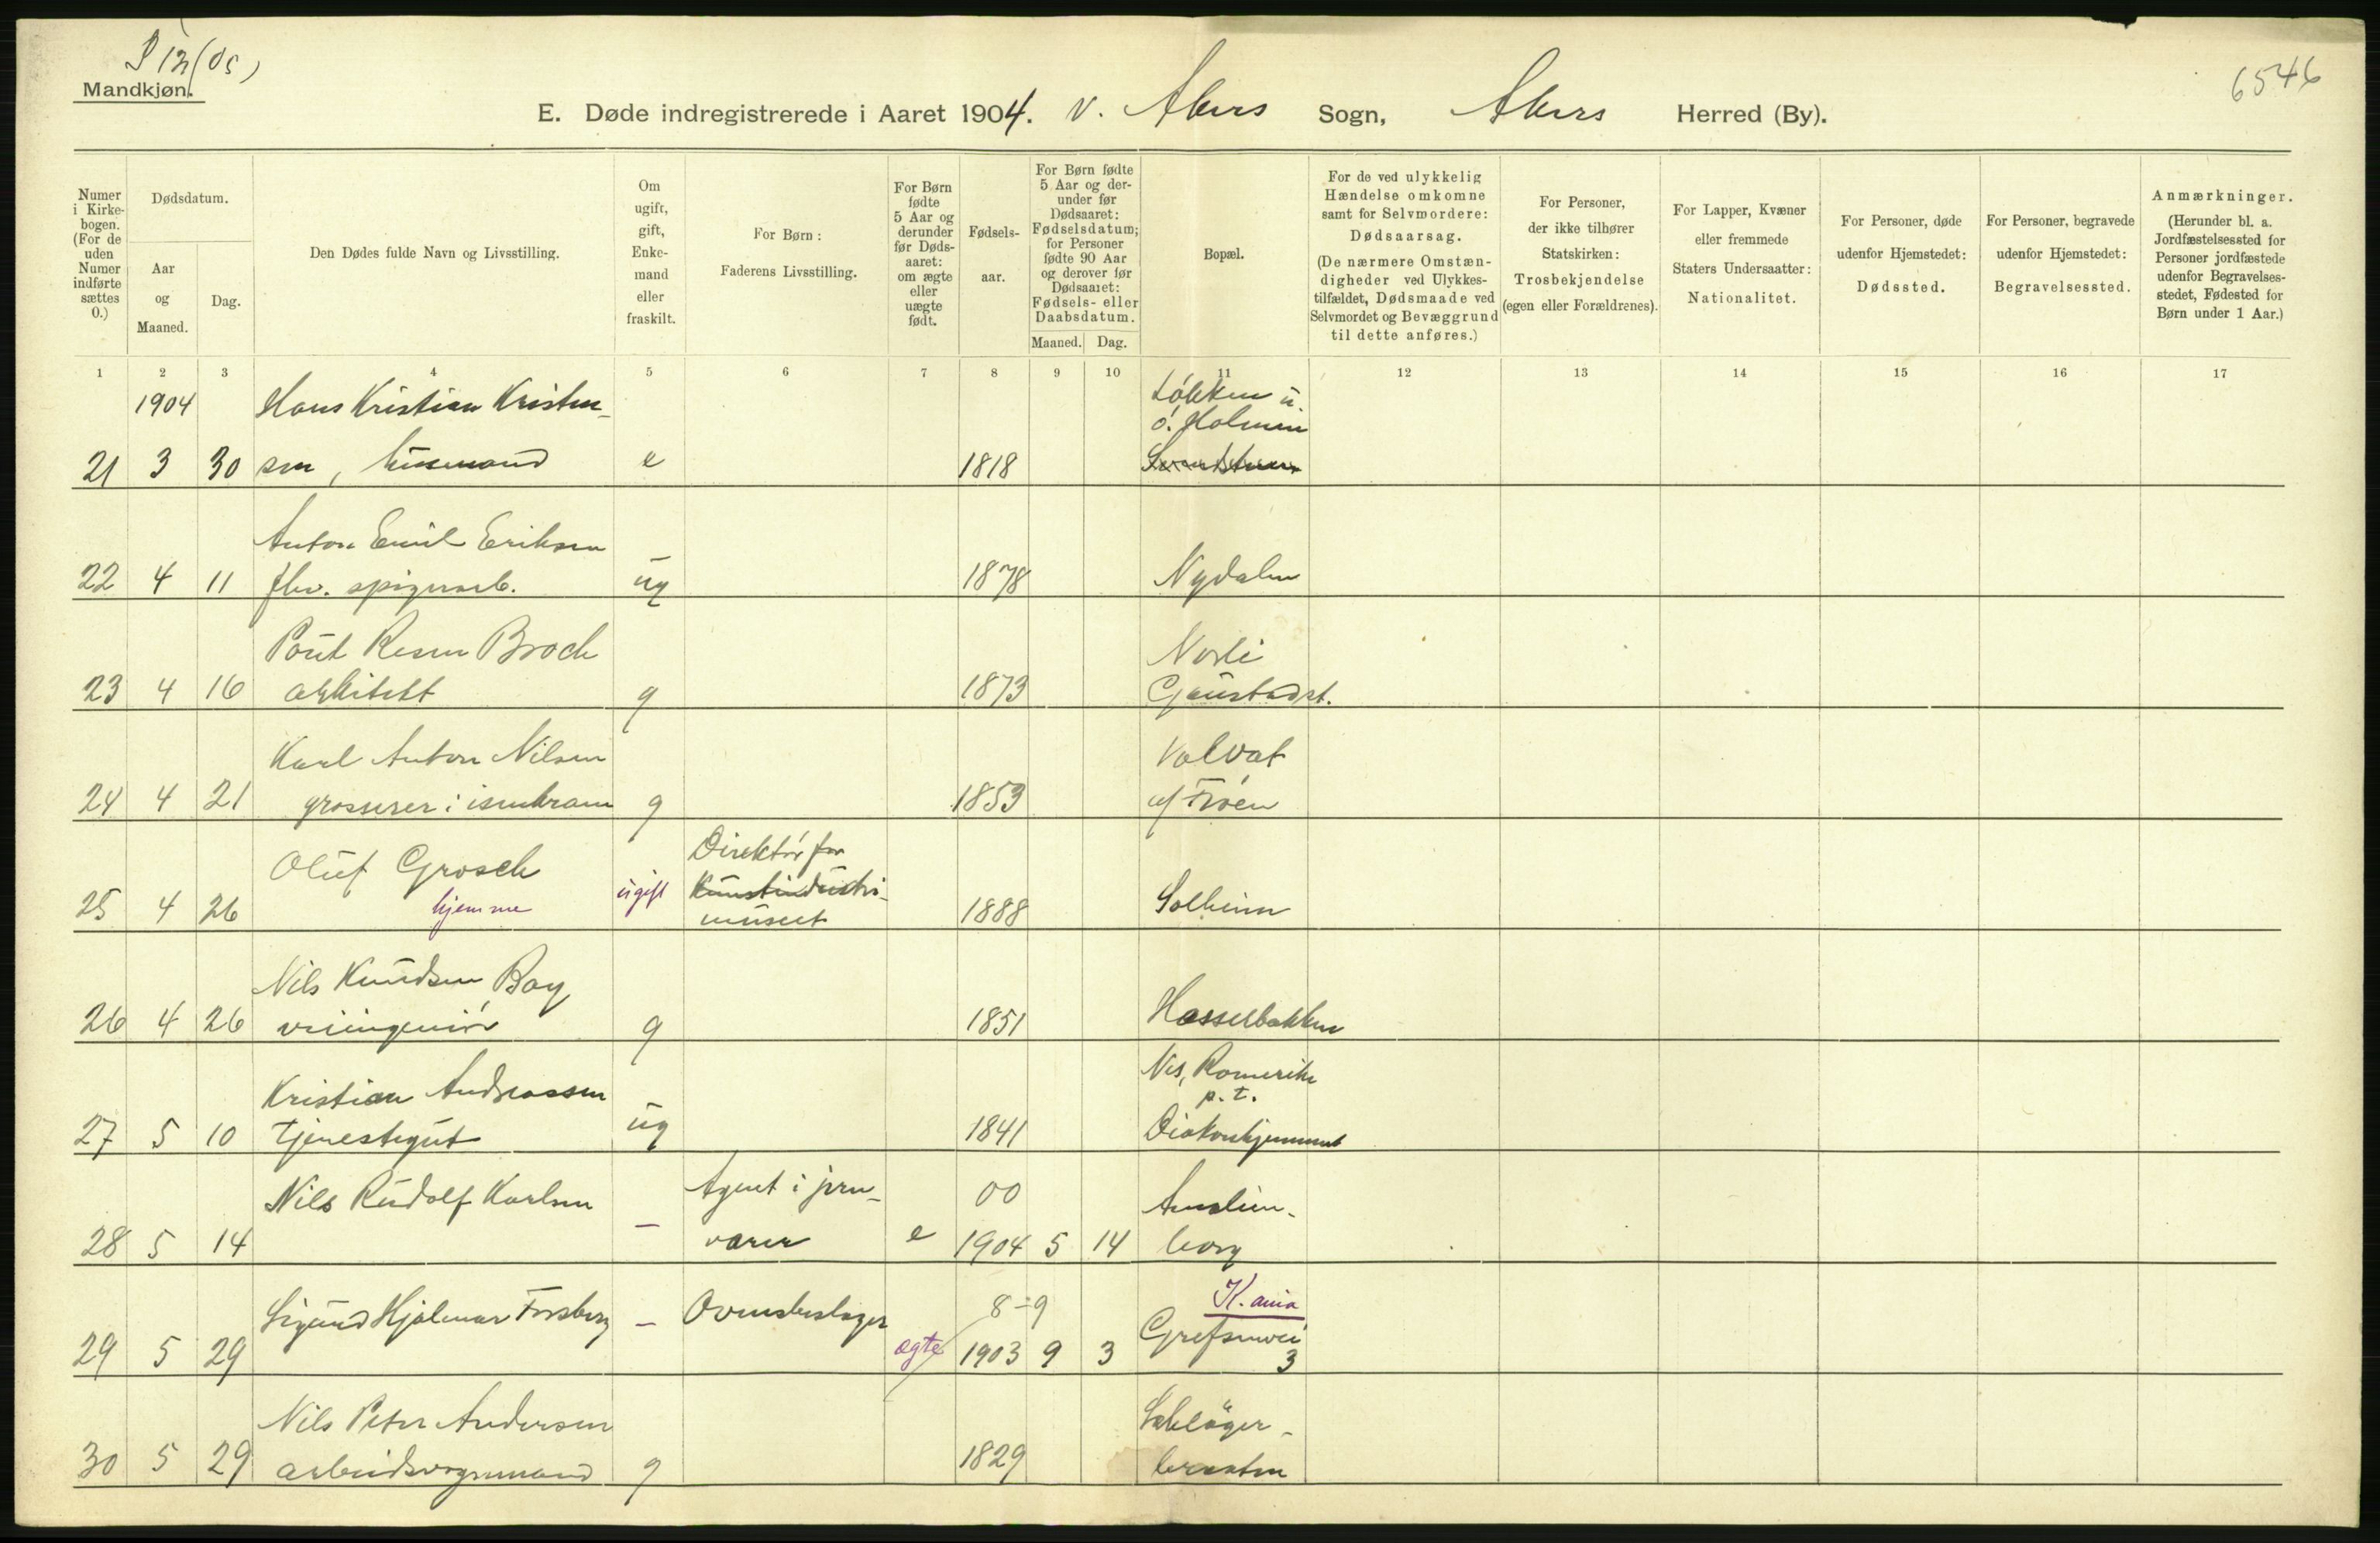 P 12 (05)
Mandkjøn.
6546
E. Døde indregistrerede i Aaret 1904. V. Akers Sogn, Akers Herred (By).
Numer i Kirkebogen. (For de uden Numer indførte sættes 0.)
Dødsdatum.
Aar og Maaned.
Dag.
Den Dødes fulde Navn og Livsstilling.
Om ugift, gift, Enkemand eller fraskilt.
For Børn:
Faderens Livsstilling.
For Børn fødte 5 Aar og derunder før Dødsaaret: om ægte eller uægte født.
Fødselsaar.
For Børn fødte 5 Aar og derunder før Dødsaaret: Fødselsdatum; for Personer fødte 90 Aar og derover før Dødsaaret: Fødsels- eller Daabsdatum.
Maaned. Dag.
Bopæl.
For de ved ulykkelig Hændelse omkomne samt for Selvmordere: Dødsaarsag.
(De nærmere Omstændigheder ved Ulykkestilfældet, Dødsmaade ved Selvmordet og Bevæggrund til dette anføres.)
For Personer, der ikke tilhører Statskirken: Trosbekjendelse (egen eller Forældrenes).
For Lapper, Kvæner eller fremmede Staters Undersaatter: Nationalitet.
For Personer, døde udenfor Hjemstedet: Dødssted.
For Personer, begravede udenfor Hjemstedet: Begravelsessted.
Anmærkninger.
(Herunder bl. a. Jordfæstelsessted for Personer jordfæstede udenfor Begravelsesstedet, Fødested for Børn under 1 Aar.)
1 2 3 4 5 6 7 8 9 10 11 12 13 14 15 16 17
1904 Hans Kristian Kristen- Løkken u.
ø. Holmen
21 3 30 sen, husmand e 1818
Anton Emil Eriksen
22 4 11 fhv. spigerarb. ug 1878 Nydalen
Poul Resen Broch Norli
23 4 16 arkitekt g 1873 Gaustadst.
Karl Anton Nilsen Volvat
24 4 21 grosserer i isenkram g 1853 u/ Frøen
Oluf Grosch Direktør for
25 4 26 hjemme ugift Kunstindustri-
museet 1888 Solheim
Nils Knudsen Bay
26 4 26 veiingeniør g 1851 Hasselbakken
Kristian Andreassen Nes, Romerike
p.t.
27 5 10 tjenestegut ug 1841 Diakonhjemmet
Nils Rudolf Karlsen Agent i jern- 00 Amalien-
28 5 14 — varer e 1904 5 14 borg
Sigurd Hjalmar Forsberg — Ovnsbeslager 8-9 K.ania
29 5 29 ægte 1903 9 3 Grefsenvei 3
Nils Peter Andersen Schläger-
30 5 29 arbeidsvognmand g 1829 braaten